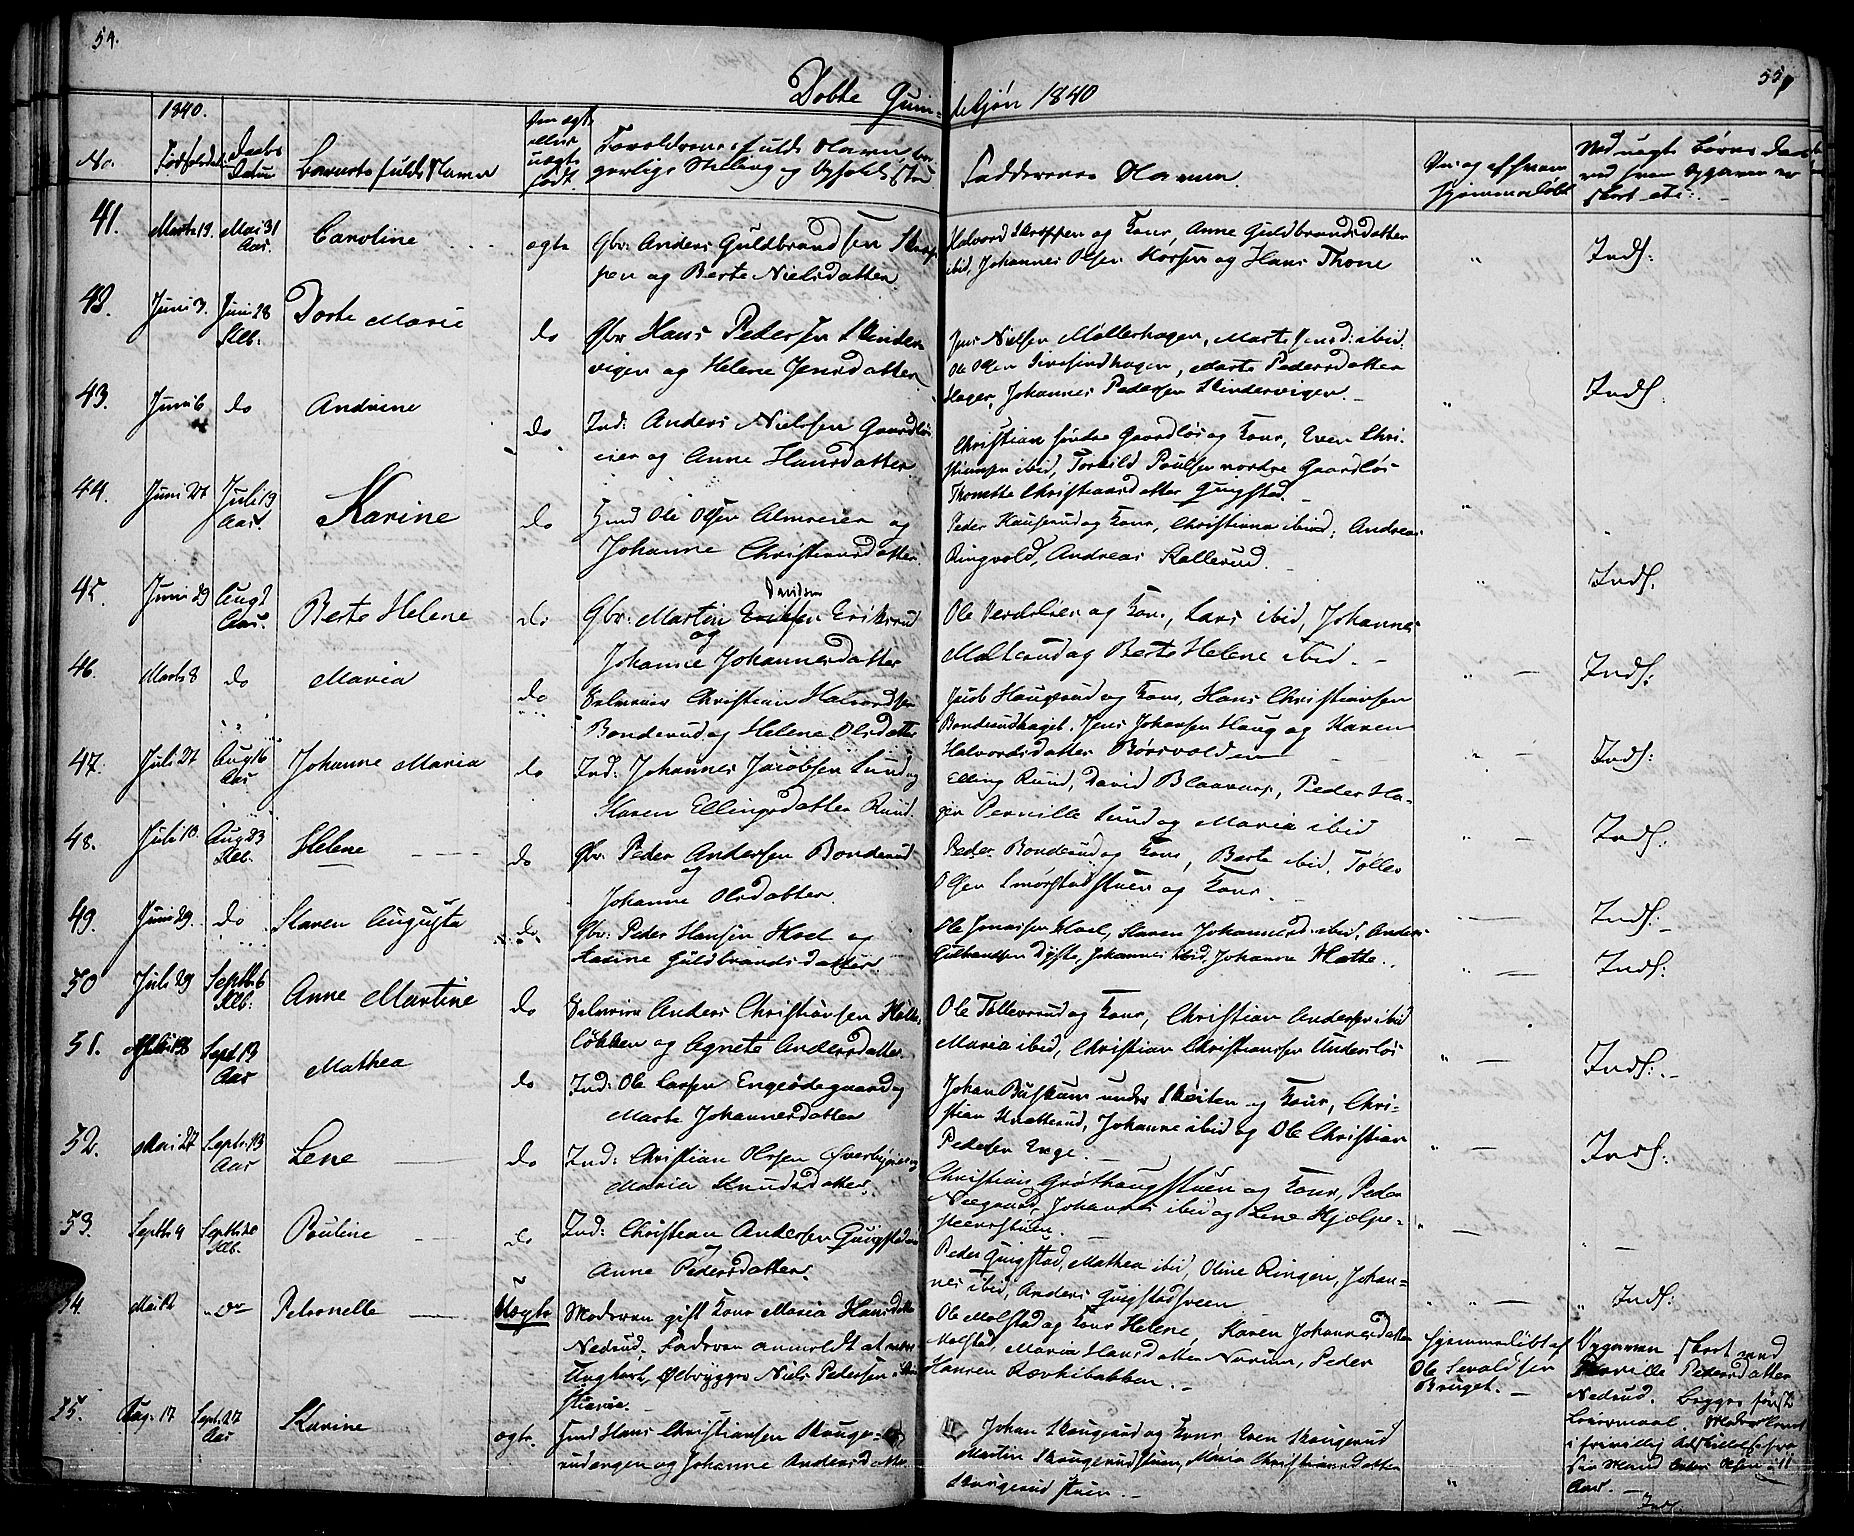 54.
55
Døbte Qvindekjøn 1840
1840.
No. Fødselsdat. Daabs Datum Barnets fulde Navn
Om ægte eller uægte født.
Forældrenes fulde Navne, borgerlige Stilling og Opholdssted
Faddernes Navne.
Om og af hvem hjemmedøbt
41. Marts 19. Mai 31 Aas. Caroline ægte Gbr: Anders Guldbrandsen Skrep-
pen og Berte Nielsdatter.
Halvord Skreppen og Kone, Anne Guldbrandsdatter
ibid, Johannes Olsen Korsen og Hans Thone
Inds:
42. Juni 3. Juni 28 Klb. Dorte Marie do Gbr Hans Pedersen Skinder-
vigen og Helene Jensdatter
Jens Nielsen Møllerhagen, Marte Jensd: ibid:
Ole Olsen Sivesindhagen, Marte Pedersdatter
Hagen, Johannes Pedersen Skindervigen.
Inds.
43. Juni 6 do Andrine do Ind: Anders Nielsen Gaardløs-
eier og Anne Hansdatter
Christian søndre Gaardløs og Kone, Even Chri-
stiansen ibid, Torkild Poulsen nordre Gaardløs
Thonette Christiansdatter Qvigstad.
44. Juni 21 Juli 19 Aas. Karine do Ind Ole Olsen Almseien og
Johanne Christiansdatter.
Peder Hauserud og Kone, Christiane ibid, Andreas
Ringvold, Andreas Kallerud.
Inds.
45. Juni 29 Aug 2 Aas. Berte Helene do Gbr: Martin Eriksen Eriksrud
Davidsen
og
Johanne Johannesdatter
Ole og Kone, Lars ibid, Johannes
Malterud og Berte Helene ibid.
Inds:
46. Marts 8 do Maria do Christian Halvordsen
Bonderud og Helene Olsdatter
Jacob Haugerud og Kone, Hans Christiansen
Bonderudhaget. Jens Johansen Haug og Karen
Halvordsdatter Børsvolden
Inds:
47. Juli 27 Aug 16 Aas Johanne Maria do Ind: Johannes Jacobsen Lund og
Karen Ellingsdatter Ruud.
Elling Ruud, David Blaavarp, Peder Ha-
gen Pernille Lund og Maria ibid
Inds.
48. Juli 13. Aug 23 Klb. Helene do Gbr. Peder Andersen Bonderud
og
Johanne Olsdatter.
Peder Bonderud og Kone, Berte ibid. Tollev
Olsen Smørstadstuen og Kone.
Inds:
49. Juni 29. do Karen Augusta do Gbr: Peder Hansen Hoel og
Karine Guldbrandsdatter.
Ole Jonassen Hoel, Karen Johannesd. ibid, Anders
Gulbrandsen Dyste, Johannes ibid, Johanne Hatte.
Inds:
50 Juli 29 Septbr 6 Klb. Anne Martine do Anders Christiansen
løkken og Agnete Andersdatter
Ole Tollevsrud og Kone, Christian Andersen ibid
Maria ibid, Christian Christiansen Underløs
Inds:
51. Sept. 13 Aas Mathea do Ind: Ole Larsen Engeødegaard og
Marte Johannesdatter
Johan Buskum under Skøiten og Kone, Chri-
stian Knatterud, Johanne ibid og Ole Christian
Pedersen Enge.
Inds:
52. Mai 27 Septr 13 Aas Lene do Ind: Christian Olsen Øverbyeie og
Maria Knudsdatter.
Christian Grøthaugstuen og Kone, Peder
Nøgaard, Johannes ibid og Lene Hjelpe-
steenstuen.
53. Septbr 4 Septbr 20 Klb. Pauline do Ind: Christian Andersen Qvigstad og
Anne Pedersdatter.
Peder Qvigstad, Mathea ibid, Oline Ringen, Johan-
nes ibid, Anders Qvigstadsveen
Inds:
54. Mai 12 do Petronelle Uægte Moderen gift Kone Maria Hansdatter
Nedrud. Faderen anmeldt at være
Ungkarl, Ølbrygger Niels Pedersen
stiania.
Ole Molstad og Kone Helene, Karen Johannesdatter
Molstad, Maria Hansdatter Narum, Peder
Hansen Rævkibakken.
Hjemmedøbt af
Ole Sevaldsen
Bruget.
Opgaven skeet ved
Pernille Pedersdatter
Nedrud. Begges første
Leiermaal. Moderen levet
i frivillig Adskillelse fra
sin Mand Olsen i 11
Aar.
55. Aug. 17 Sept. 27 Aas Karine ægte. Ind Hans Christiansen Skauge-
rudengen og Johanne Andersdatter
Johan Skaugerud og Kone, Even Skaugerud
Martin Skaugerudstuen, Maria Christiansdatter
Skaugerudstuen.
Inds.